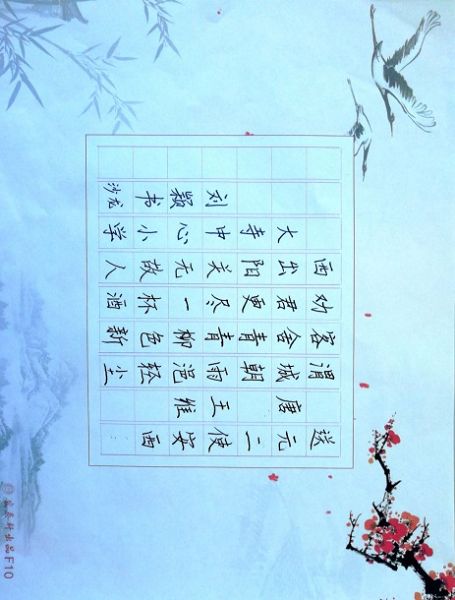 送元二使安西
唐 王维
渭城朝雨浥轻尘
客舍青青柳色新
劝君更尽一杯酒
西出阳关无故人
大寺中心小学
刘颖书
沙龙
出品F10